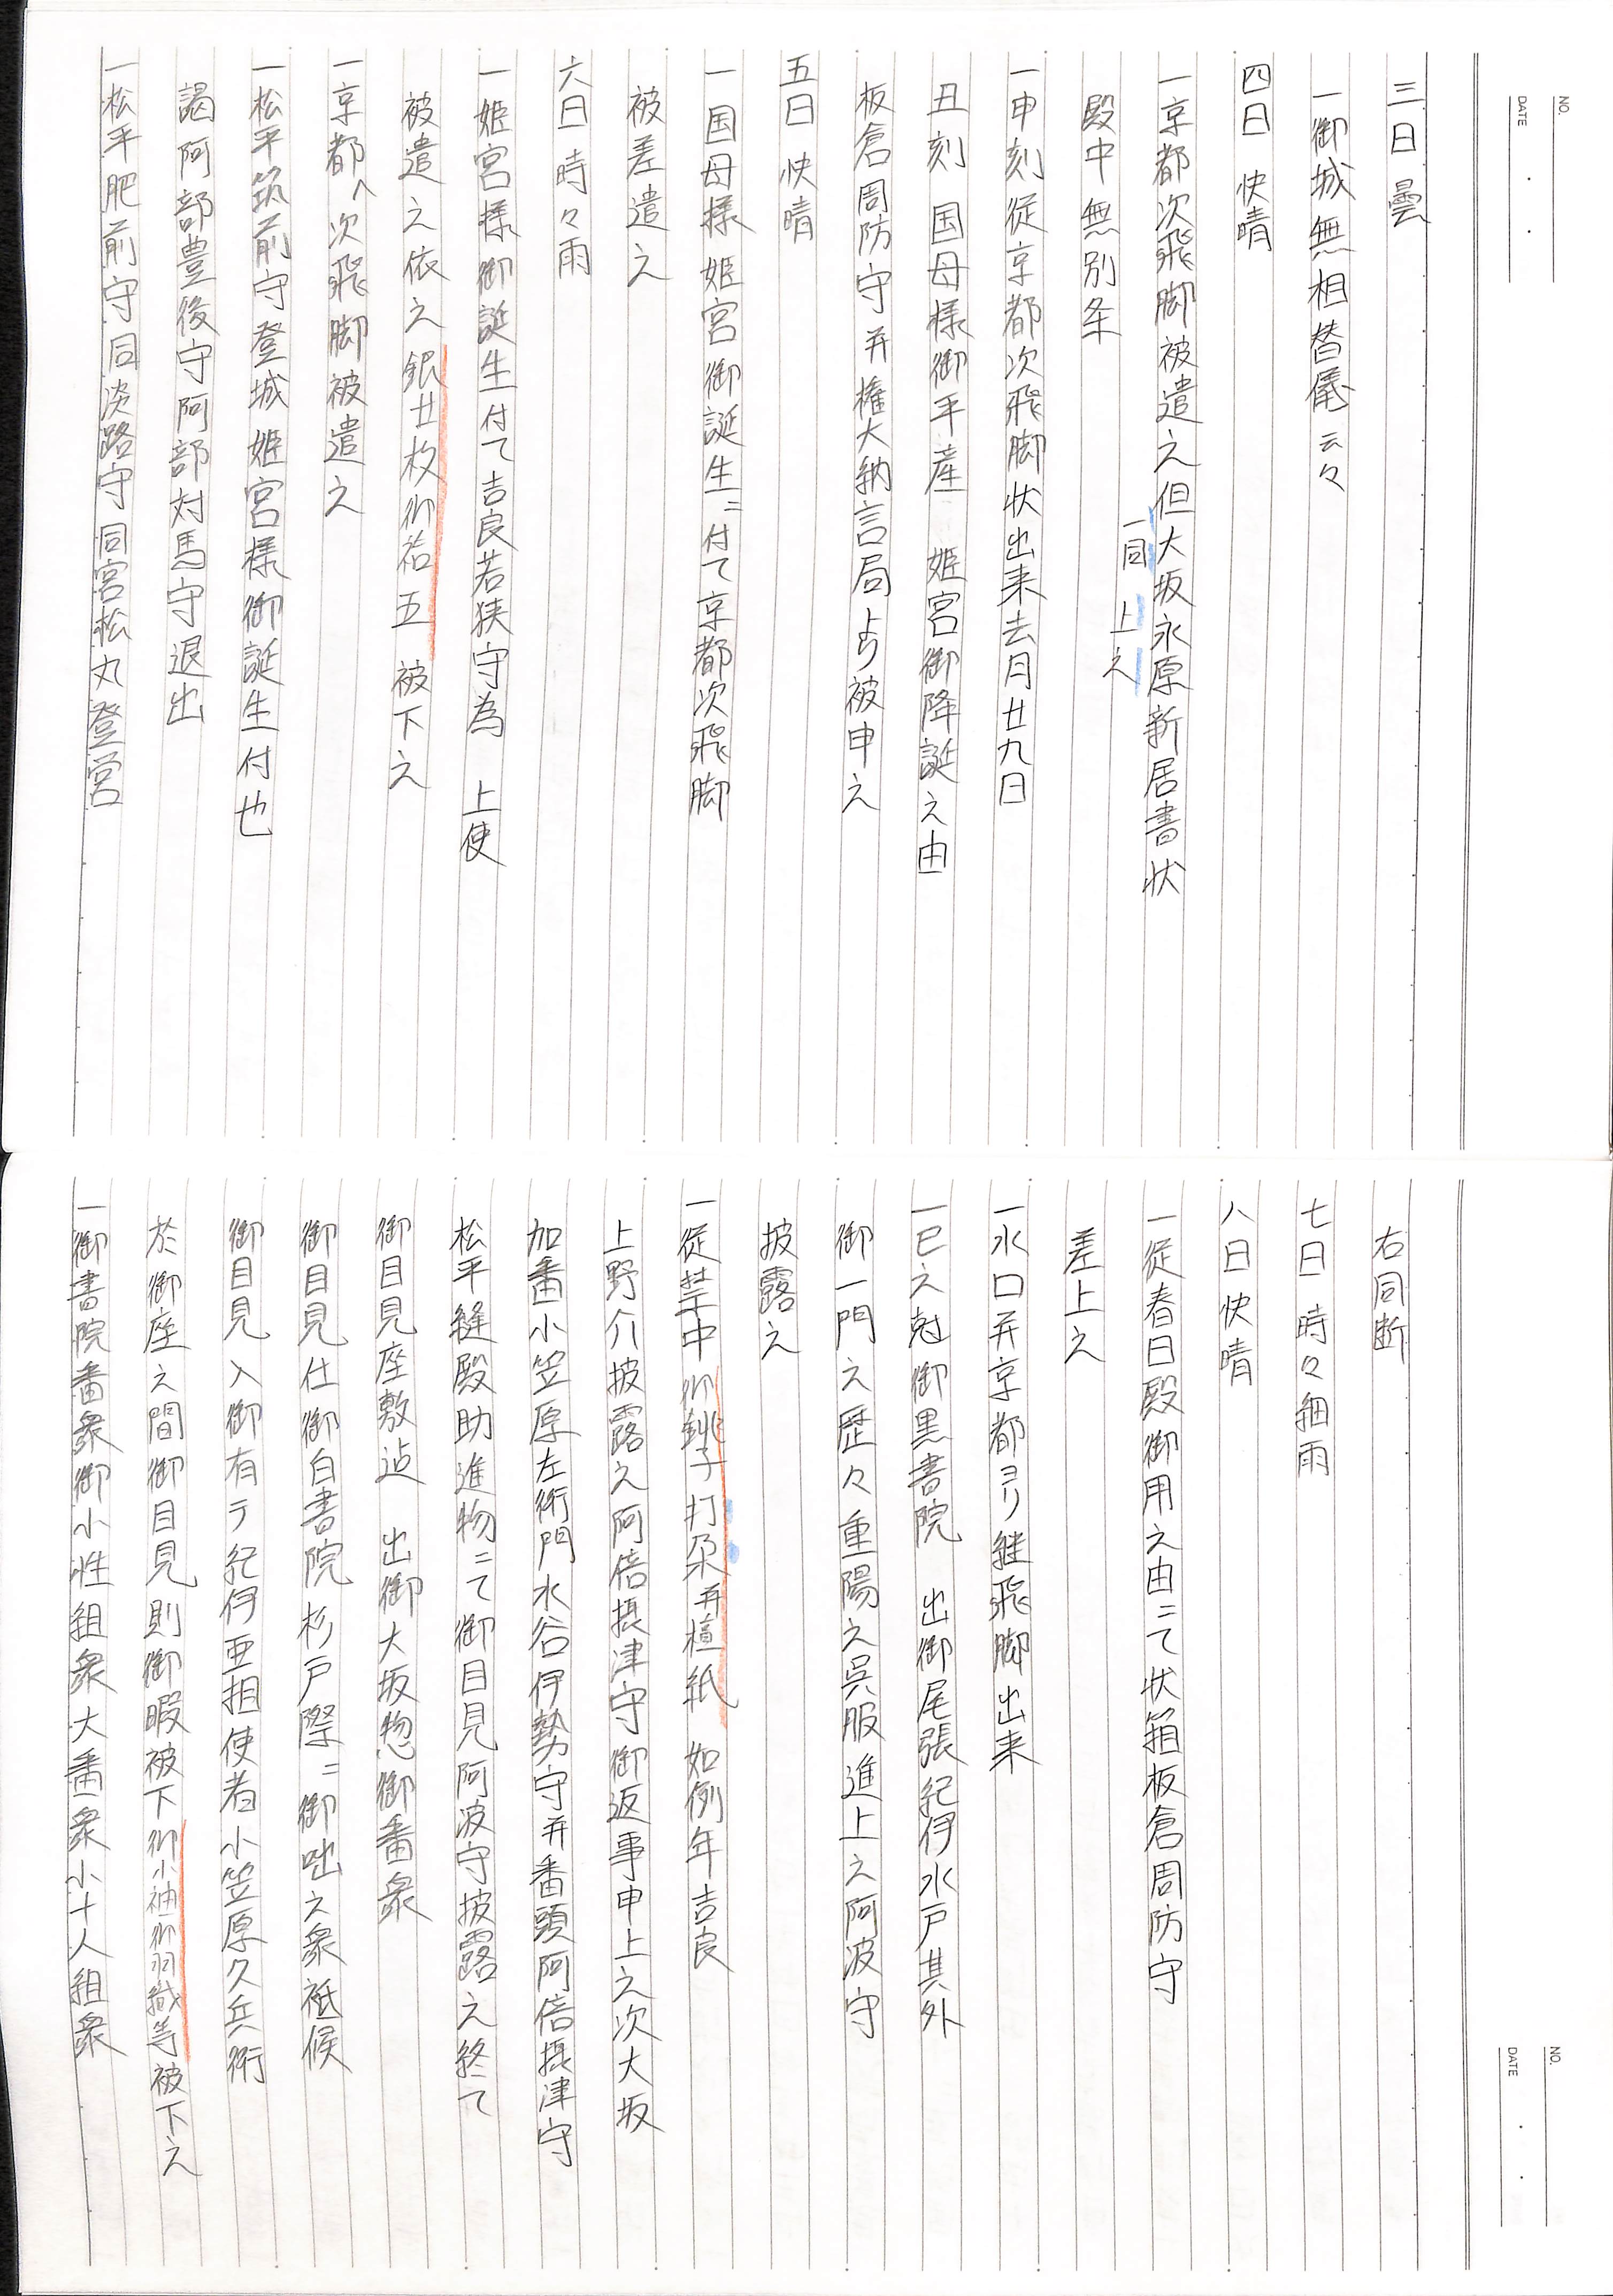 NO.
DATE
三日 曇
一御城無相替儀云々
四日 快晴
一京都次飛脚被遣之但大坂永原新居書状
一同 上之
殿中無別条
一申刻従京都次飛脚状出来去月廿九日
丑刻 国母様御平産 姫宮御降誕之由
板倉周防守并権大納言局ゟ被申之
五日 快晴
一国母様姫宮御誕生ニ付て京都次飛脚
被差遣之
六日 時々雨
一姫宮様御誕生付て吉良若狭守為 上使
被遣之依之銀廿枚御袷五 被下之
一京都へ次飛脚被遣之
一松平筑前守登城姫宮様御誕生付也
謁阿部豊後守阿部対馬守退出
一松平肥前守同淡路守同宮松丸登営
右同断
七日 時々細雨
八日 快晴
一従春日殿御用之由ニて状箱板倉周防守
差上之
一水口并京都ヨリ継飛脚出来
一巳之刻御黒書院 出御尾張紀伊水戸其外
御一門之歴々重陽之呉服進上之阿波守
披露之
一従禁中御銚子打朶并檀紙 如例年吉良
上野介披露之阿倍摂津守御返事申上之次大坂
加番小笠原左衛門水谷伊勢守并番頭阿倍摂津守
松平縫殿助進物ニて御目見阿波守披露之終て
御目見座敷迠 出御大坂惣御番衆
御目見仕御白書院杉戸際ニ御咄之衆祗候
御目見 入御有テ紀伊亜相使者小笠原久兵衛
於御座之間御目見則御暇被下御小袖御羽織等被下之
一御書院番衆御小性組衆大番衆小十人組衆
NO.
DATE